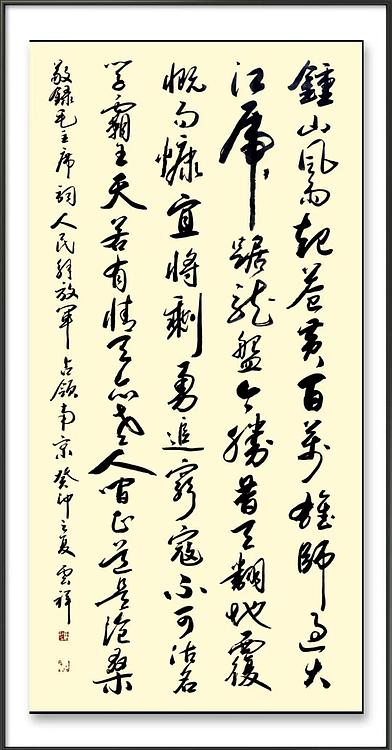 鍾山風雨起蒼黄百萬雄師過大
江虎踞龍盤今勝昔天翻地覆
慨而慷宜將剩勇追窮寇不可沽名
学霸王天若有情天亦老人間正道是滄桑
敬録毛主席詞人民解放軍占領南京癸卯之夏雲祥